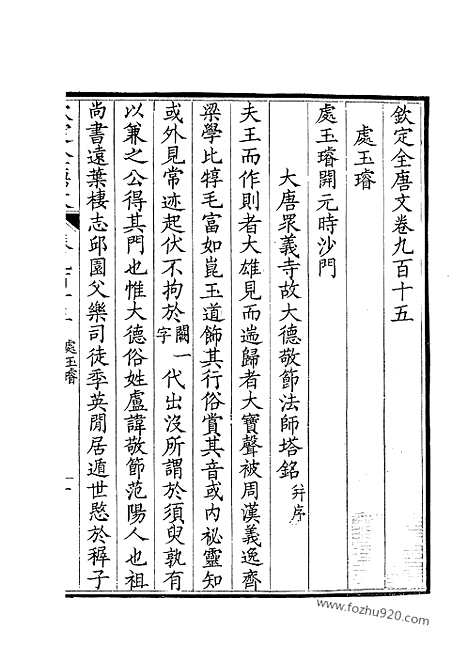 欽定全唐文卷九百十五
處玉璿
處玉璿開元時沙門
大唐眾義寺故大德敬節法師塔銘并序
夫王而作則者大雄見而遄歸者大寶聲被周漢義逸齊
梁學比犉毛富如崑玉道飾其行俗賞其音或內祕靈知
或外見常迹起伏不拘於闕一字代出沒所謂於須臾孰有
以兼之公得其門也惟大德俗姓盧諱敬節范陽人也祖
尚書遠葉棲志邱園父樂司徒季英閒居遁世愍於稺子
處玉璿
www.fozhu920.com